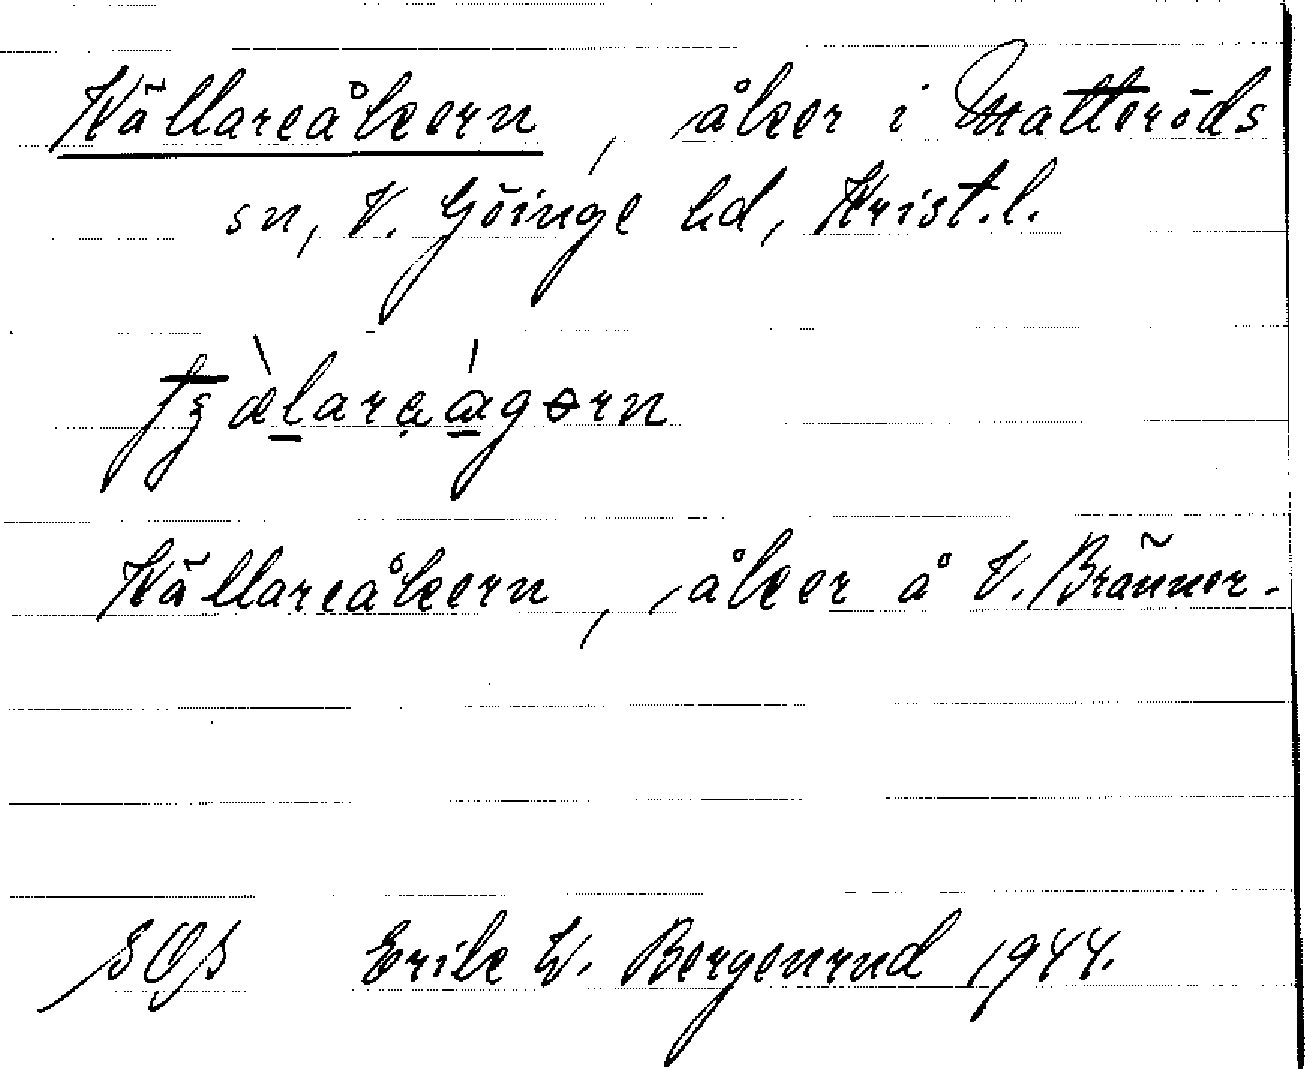 Källareåkern, åker i Matteröds
sn, V. Göinge hd, Krist.l.
Källareåkern, åker å V. Bränner.
SOS Erik W. Bergenrud 1944.